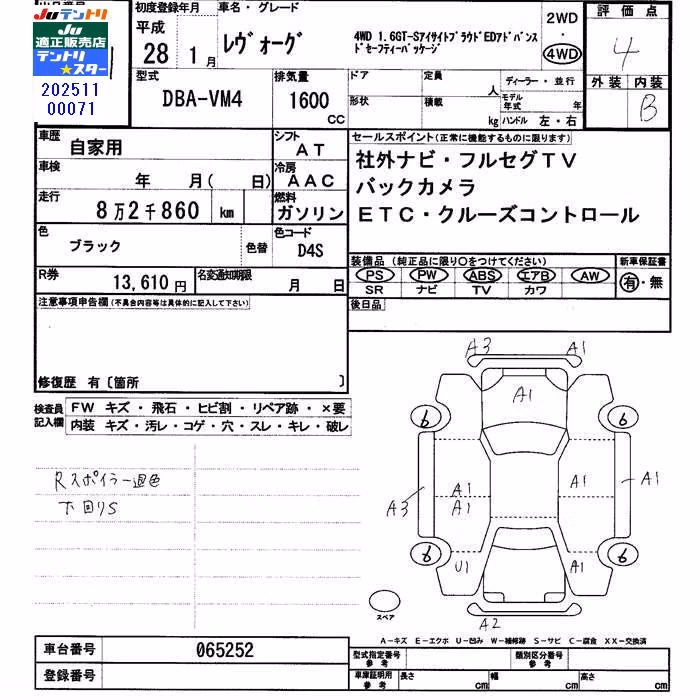 出品番号
Juテントリ
適正販売店
テントリ
★スター
202511
00071
初度登録年月
平成
28 1月
車名・グレード
レヴォーグ
4WD 1.6GT-SアイサイトプラウドEDアドバンス
ドセーフティーパッケージ
2WD
・
4WD
評価点
4
外装 内装
B
型式
DBA-VM4
排気量
1600
CC
ドア
定員
人
形状
積載
kg
ディーラー・並行
モデル
年式 年
ハンドル 左・右
車歴
自家用
シフト
AT
車検
年 月( 日)
冷房
AAC
走行
8万2千860 km
燃料
ガソリン
色
ブラック
色替
色コード
D4S
R券
13,610円
名変通知期限
月 日
セールスポイント(正常に機能するものに限ります)
社外ナビ・フルセグTV
バックカメラ
ETC・クルーズコントロール
装備品(純正品に限り○をつけてください)
PS PW ABS エアB AW
SR ナビ TV カワ
新車保証書
有・無
後日品
注意事項申告欄(不具合内容等は具体的に記入して下さい)
修復歴 有〔箇所 〕
検査員
記入欄
FW キズ・飛石・ヒビ割・リペア跡・×要
内装 キズ・汚レ・コゲ・穴・スレ・キレ・破レ
Rスポイラー退色
下回りS
A3 A1
A1
6 6
A3 A1 A1 A1 A1
A1
6 6
U1 A1
A2
スペア
A-キズ E-エクボ U-凹み W-補修跡 S-サビ C-腐食 XX-交換済
車台番号
065252
登録番号
型式指定番号
参考
類別区分番号
参考
車庫証明用
参考
長さ cm
幅 cm
高さ cm